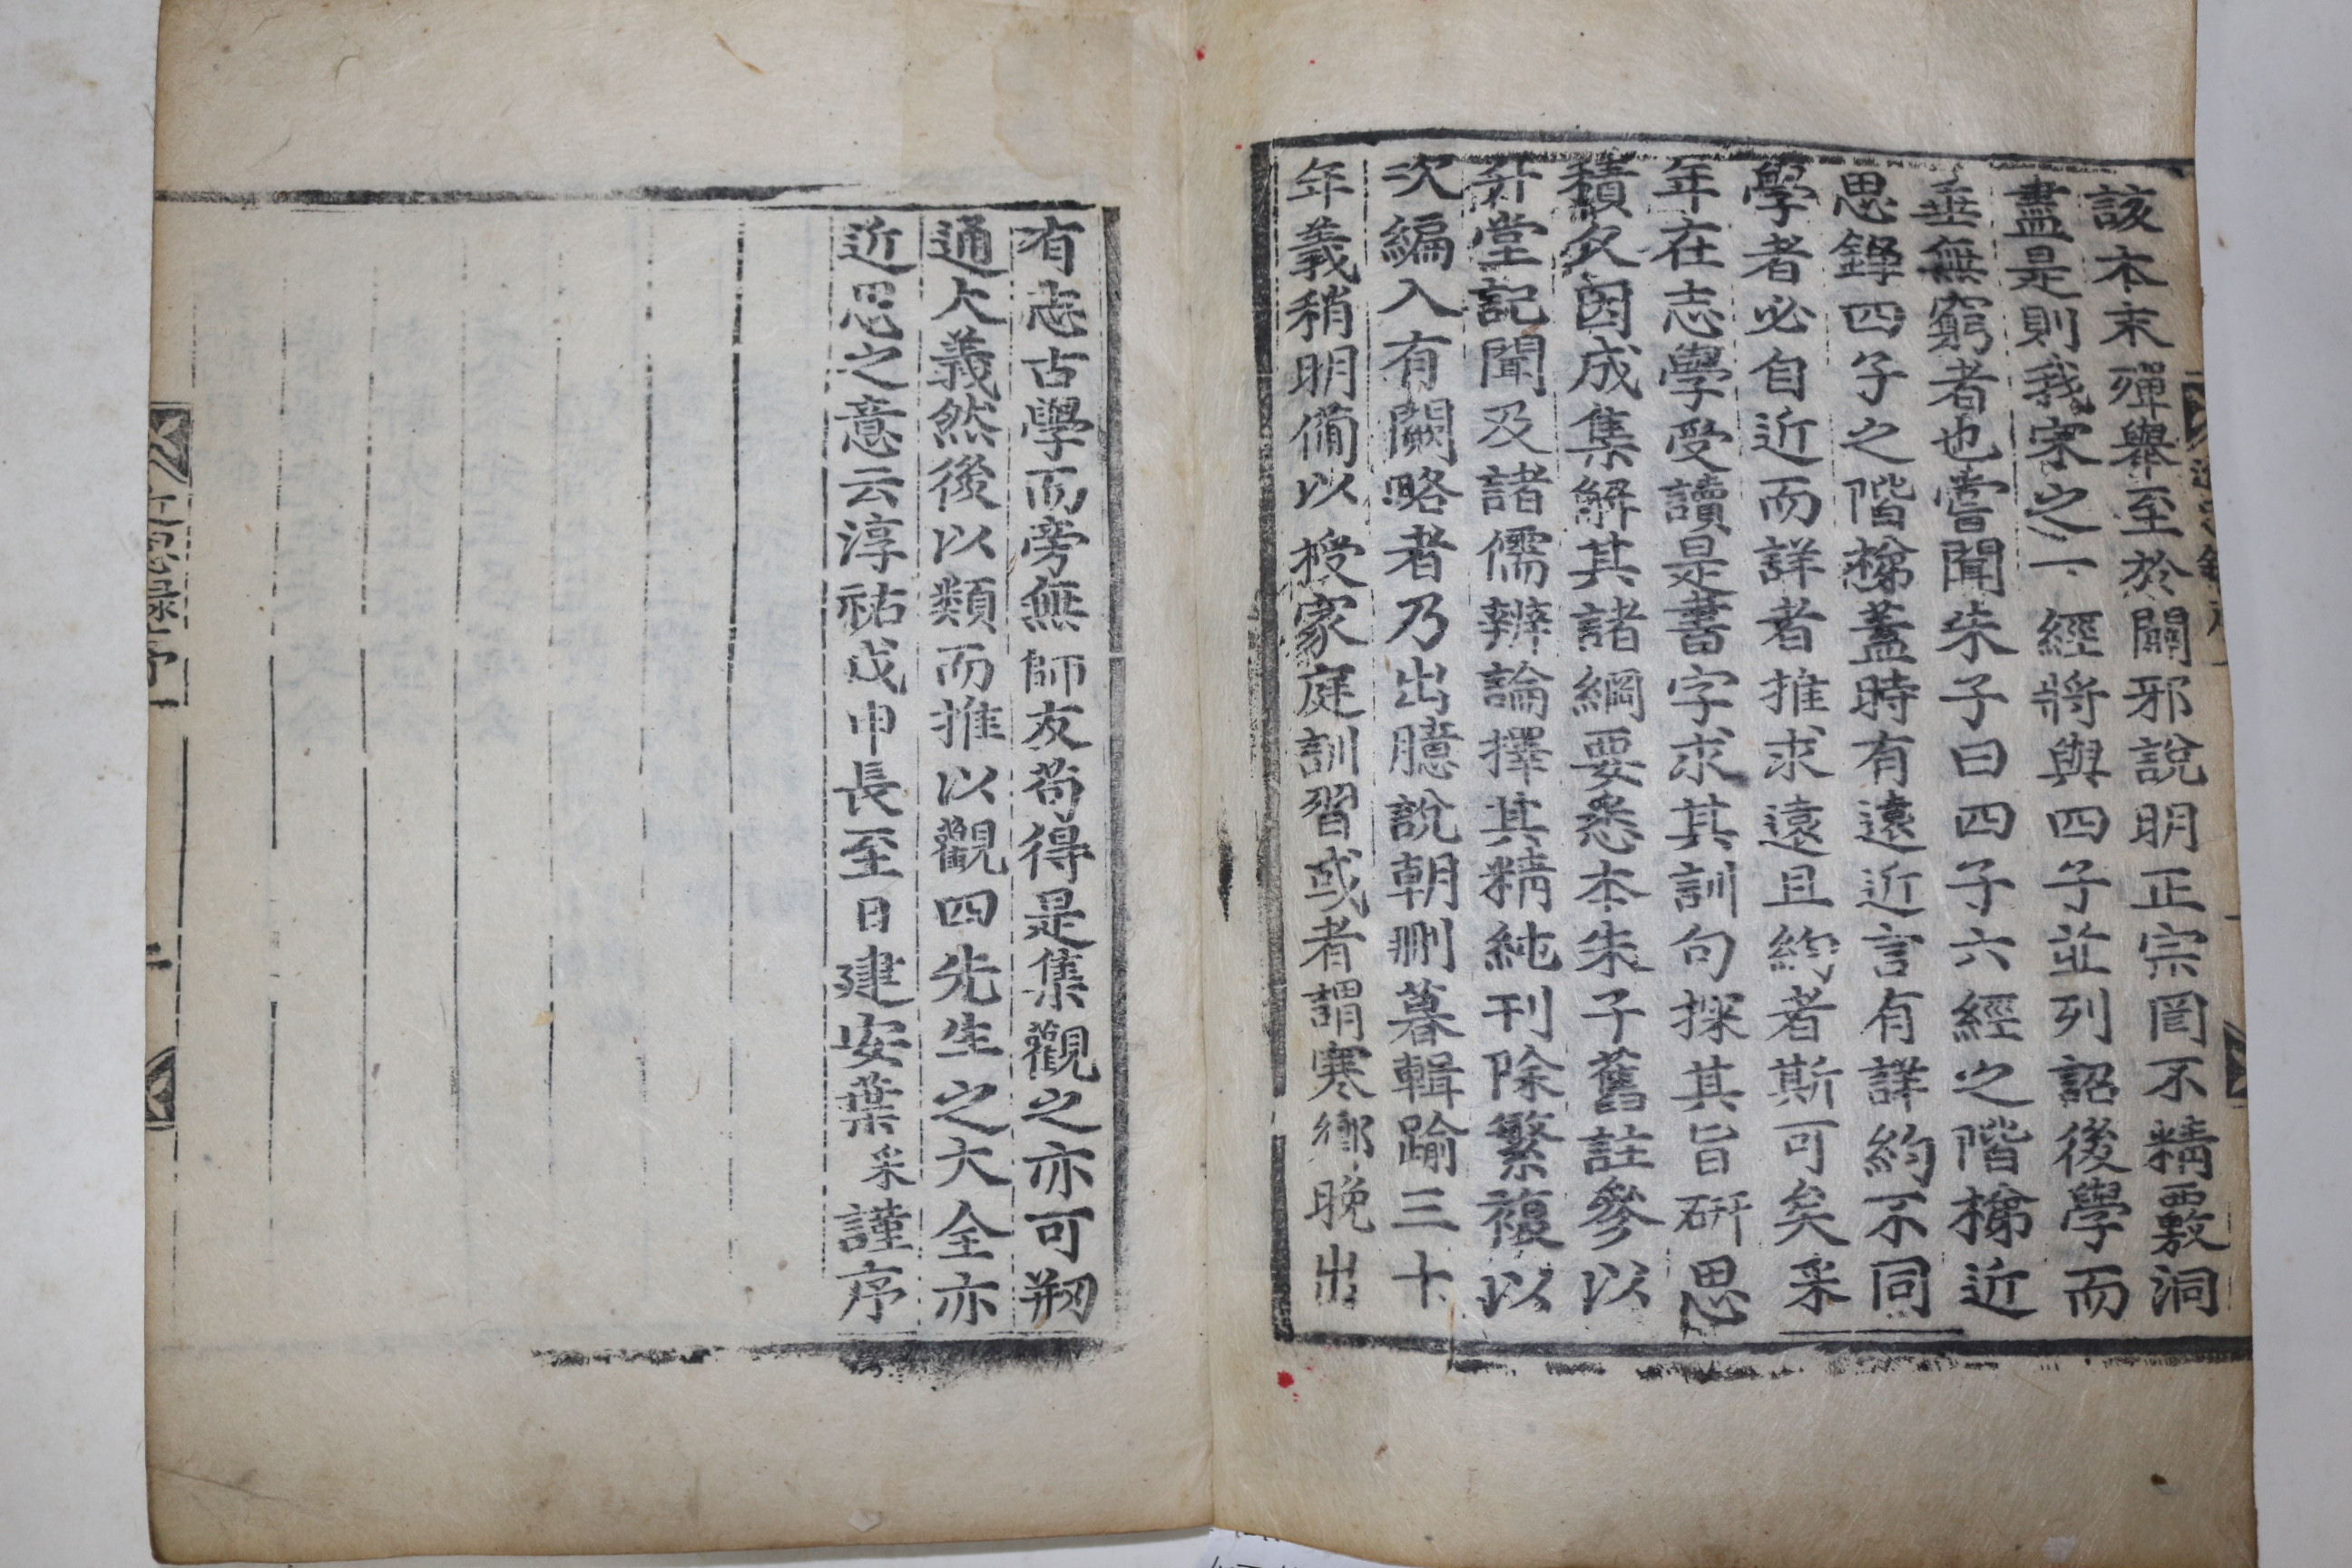 該本末殫舉至於闢邪說明正宗罔不精覈洞
盡是則我宋之一經將與四子並列詔後學而
垂無窮者也嘗聞朱子曰四子六經之階梯近
思錄四子之階梯蓋時有遠近言有詳約不同
學者必自近而詳者推求遠且約者斯可矣采
年在志學受讀是書字求其訓句探其旨研思
積久因成集解其諸綱要悉本朱子舊註參以
升堂記聞及諸儒辨論擇其精純刊除繁複以
次編入有闕略者乃出臆說朝刪暮輯踰三十
年義稍明備以授家庭訓習或者謂寒鄉晚出
有志古學而旁無師友苟得是集觀之亦可刱
通大義然後以類而推以觀四先生之大全亦
近思之意云淳祐戊申長至日建安葉采謹序
近思録序